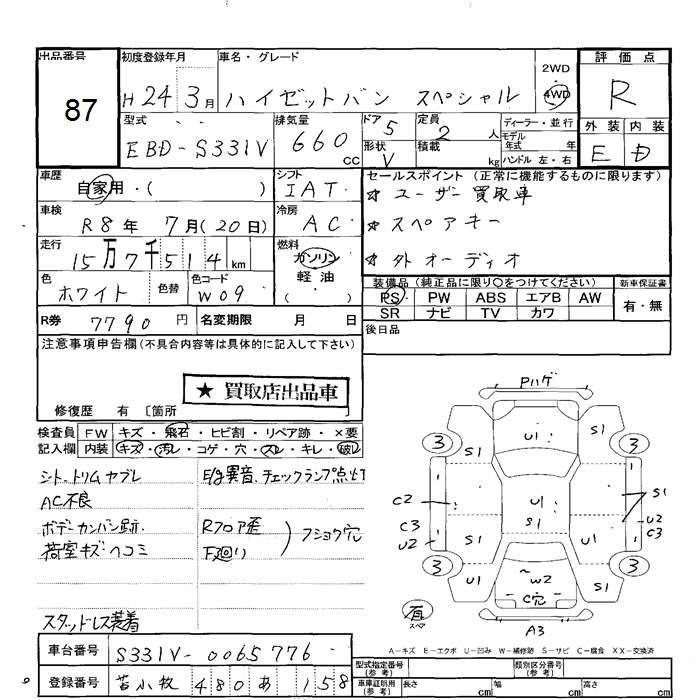 出品番号 初度登録年月 車名・グレード 2WD 評価点
87 H 24年 3月 ハイゼットバン スペシャル 4WD R
型式 排気量 ドア 定員 ディーラー・並行 外装 内装
EBD-S331V 660 cc 5 2 人 モデル年式 年 E D
形状 V 積載 kg ハンドル 左・右
車歴 自家用・( ) シフト IAT セールスポイント(正常に機能するものに限ります)
☆ ユーザー買取車
車検 R8年 7月(20日) 冷房 AC ☆ スペアキー
走行 15万7千514 km 燃料 ガソリン 軽油 ( ) ☆ 外オーディオ
色 ホワイト 色替 色コード W09 装備品(純正品に限り○をつけてください) 新車保証書
PS PW ABS エアB AW 有・無
SR ナビ TV カワ
R券 7790円 名変期限 月 日 後日品
注意事項申告欄(不具合内容等は具体的に記入して下さい)
★ 買取店出品車
修復歴 有 〔箇所
検査員 FW キズ・飛石・ヒビ割・リペア跡・×要
記入欄 内装 キズ・汚レ・コゲ・穴・スレ・キレ・破レ
シート、トリム ヤブレ E/g異音、チェックランプ点灯
AC不良
ボデーカンバン跡、 Rフロア歪 フショウ穴
荷室キズ・ヘコミ 下廻り
スタッドレス装着
Pハゲ
3 S1 U1 S1 3
C2 U1 S1
C3 S1 U2
U2 S1 U1 S1 C3
3 U1 〜W2 S1 3
C穴
有 スペア A3
A-キズ E-エクボ U-凹み W-補修跡 S-サビ C-腐食 XX-交換済
車台番号 S331V-0065776 型式指定番号(参考) 類別区分番号(参考)
登録番号 苫小牧 480 あ 158 車庫証明用(参考) 長さ cm 幅 cm 高さ cm